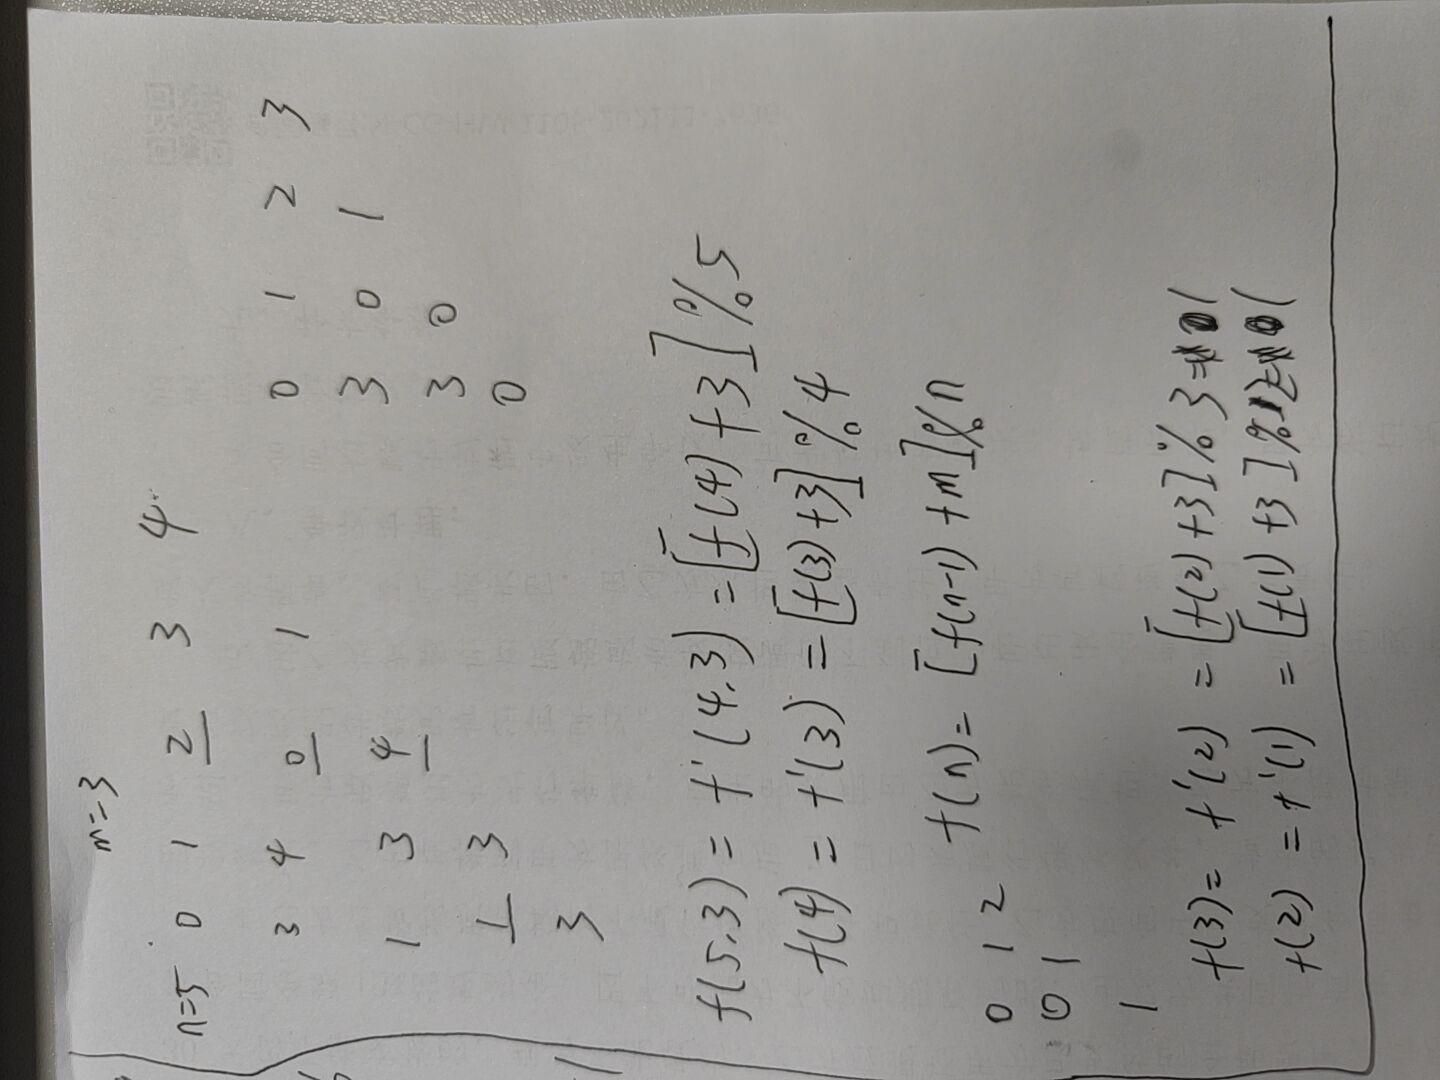 m=3
n=5 0 1 2 3 4
3 4 0 1 0 1 2 3
1 3 4 3 0 1
1 3 3 0
3 0
f(5,3) = f'(4,3) = [f(4)+3]%5
f(4) = f'(3) = [f(3)+3]%4
f(n) = [f(n-1)+m]%n
0 1 2
0 1
1
f(3) = f'(2) = [f(2)+3]%3=1
f(2) = f'(1) = [f(1)+3]%2=1